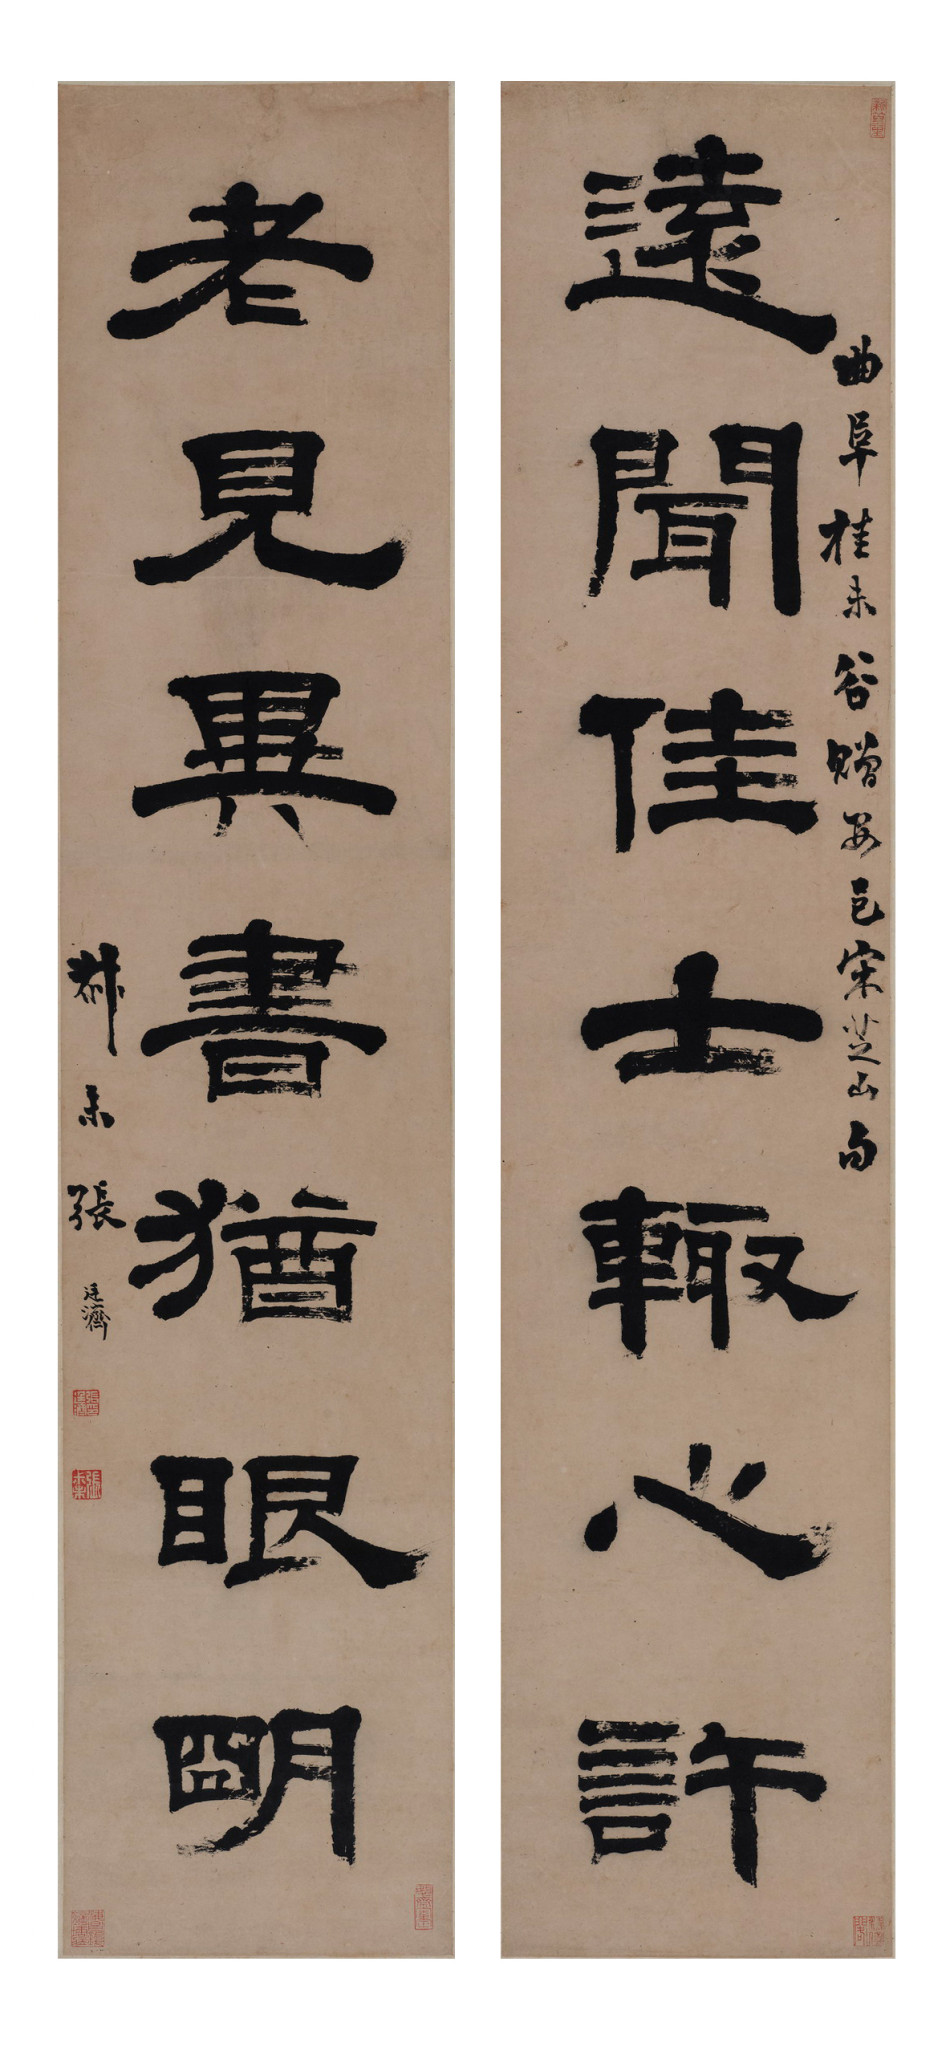 曲阜桂未谷贈安邑宋芝山句
遠聞佳士輒心許
老見異書猶眼明
叔未張廷濟